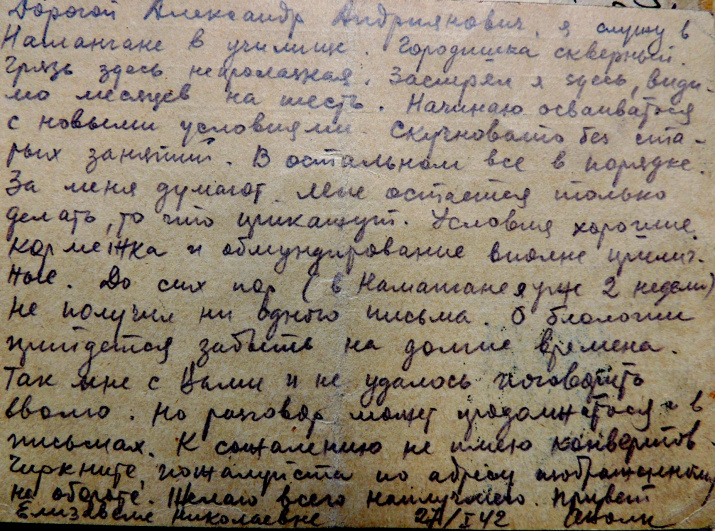 Дорогой Александр Андриянович, я служу в
Намангане в училище. Городишка скверный.
Грязь здесь непролазная. Застрял я здесь, види-
мо месяцев на шесть. Начинаю осваиваться
с новыми условиями. Скучновато без ста-
рых занятий. В остальном все в порядке.
За меня думают. Мне остается только
делать, то что прикажут. Условия хорошие.
кормежка и обмундирование вполне прилич-
ные. До сих пор (в Намангане я уже 2 недели)
не получил ни одного письма. О биологии
прийдется забыть на долгие времена.
Так мне с Вами и не удалось поговорить
вволю. Но разговор может продолжаться и в
письмах. К сожалению не имею конвертов.
Чиркните, пожалуйста по адресу изображенному
на обороте. Желаю всего наилучшего. Привет
Елизавете Николаевне 27/I 42